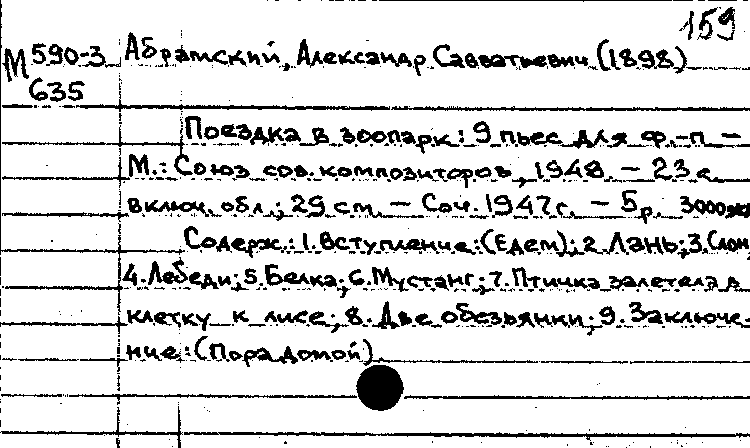 159
М 590-3 Абрамский, Александр Савватьевич (1898)
635
Поездка в зоопарк: 9 пьес для ф.-п. –
М.: Союз сов. композиторов, 1948. – 23 с.
включ. обл.; 29 см. – Соч. 1947 г. – 5 р. 3000 экз
Содерж.: 1. Вступление: (Едем); 2. Лань; 3. Слон;
4. Лебеди; 5. Белка; 6. Мустанг; 7. Птичка залетела в
клетку к лисе; 8. Две обезьянки; 9. Заключе-
ние: (Пора домой).